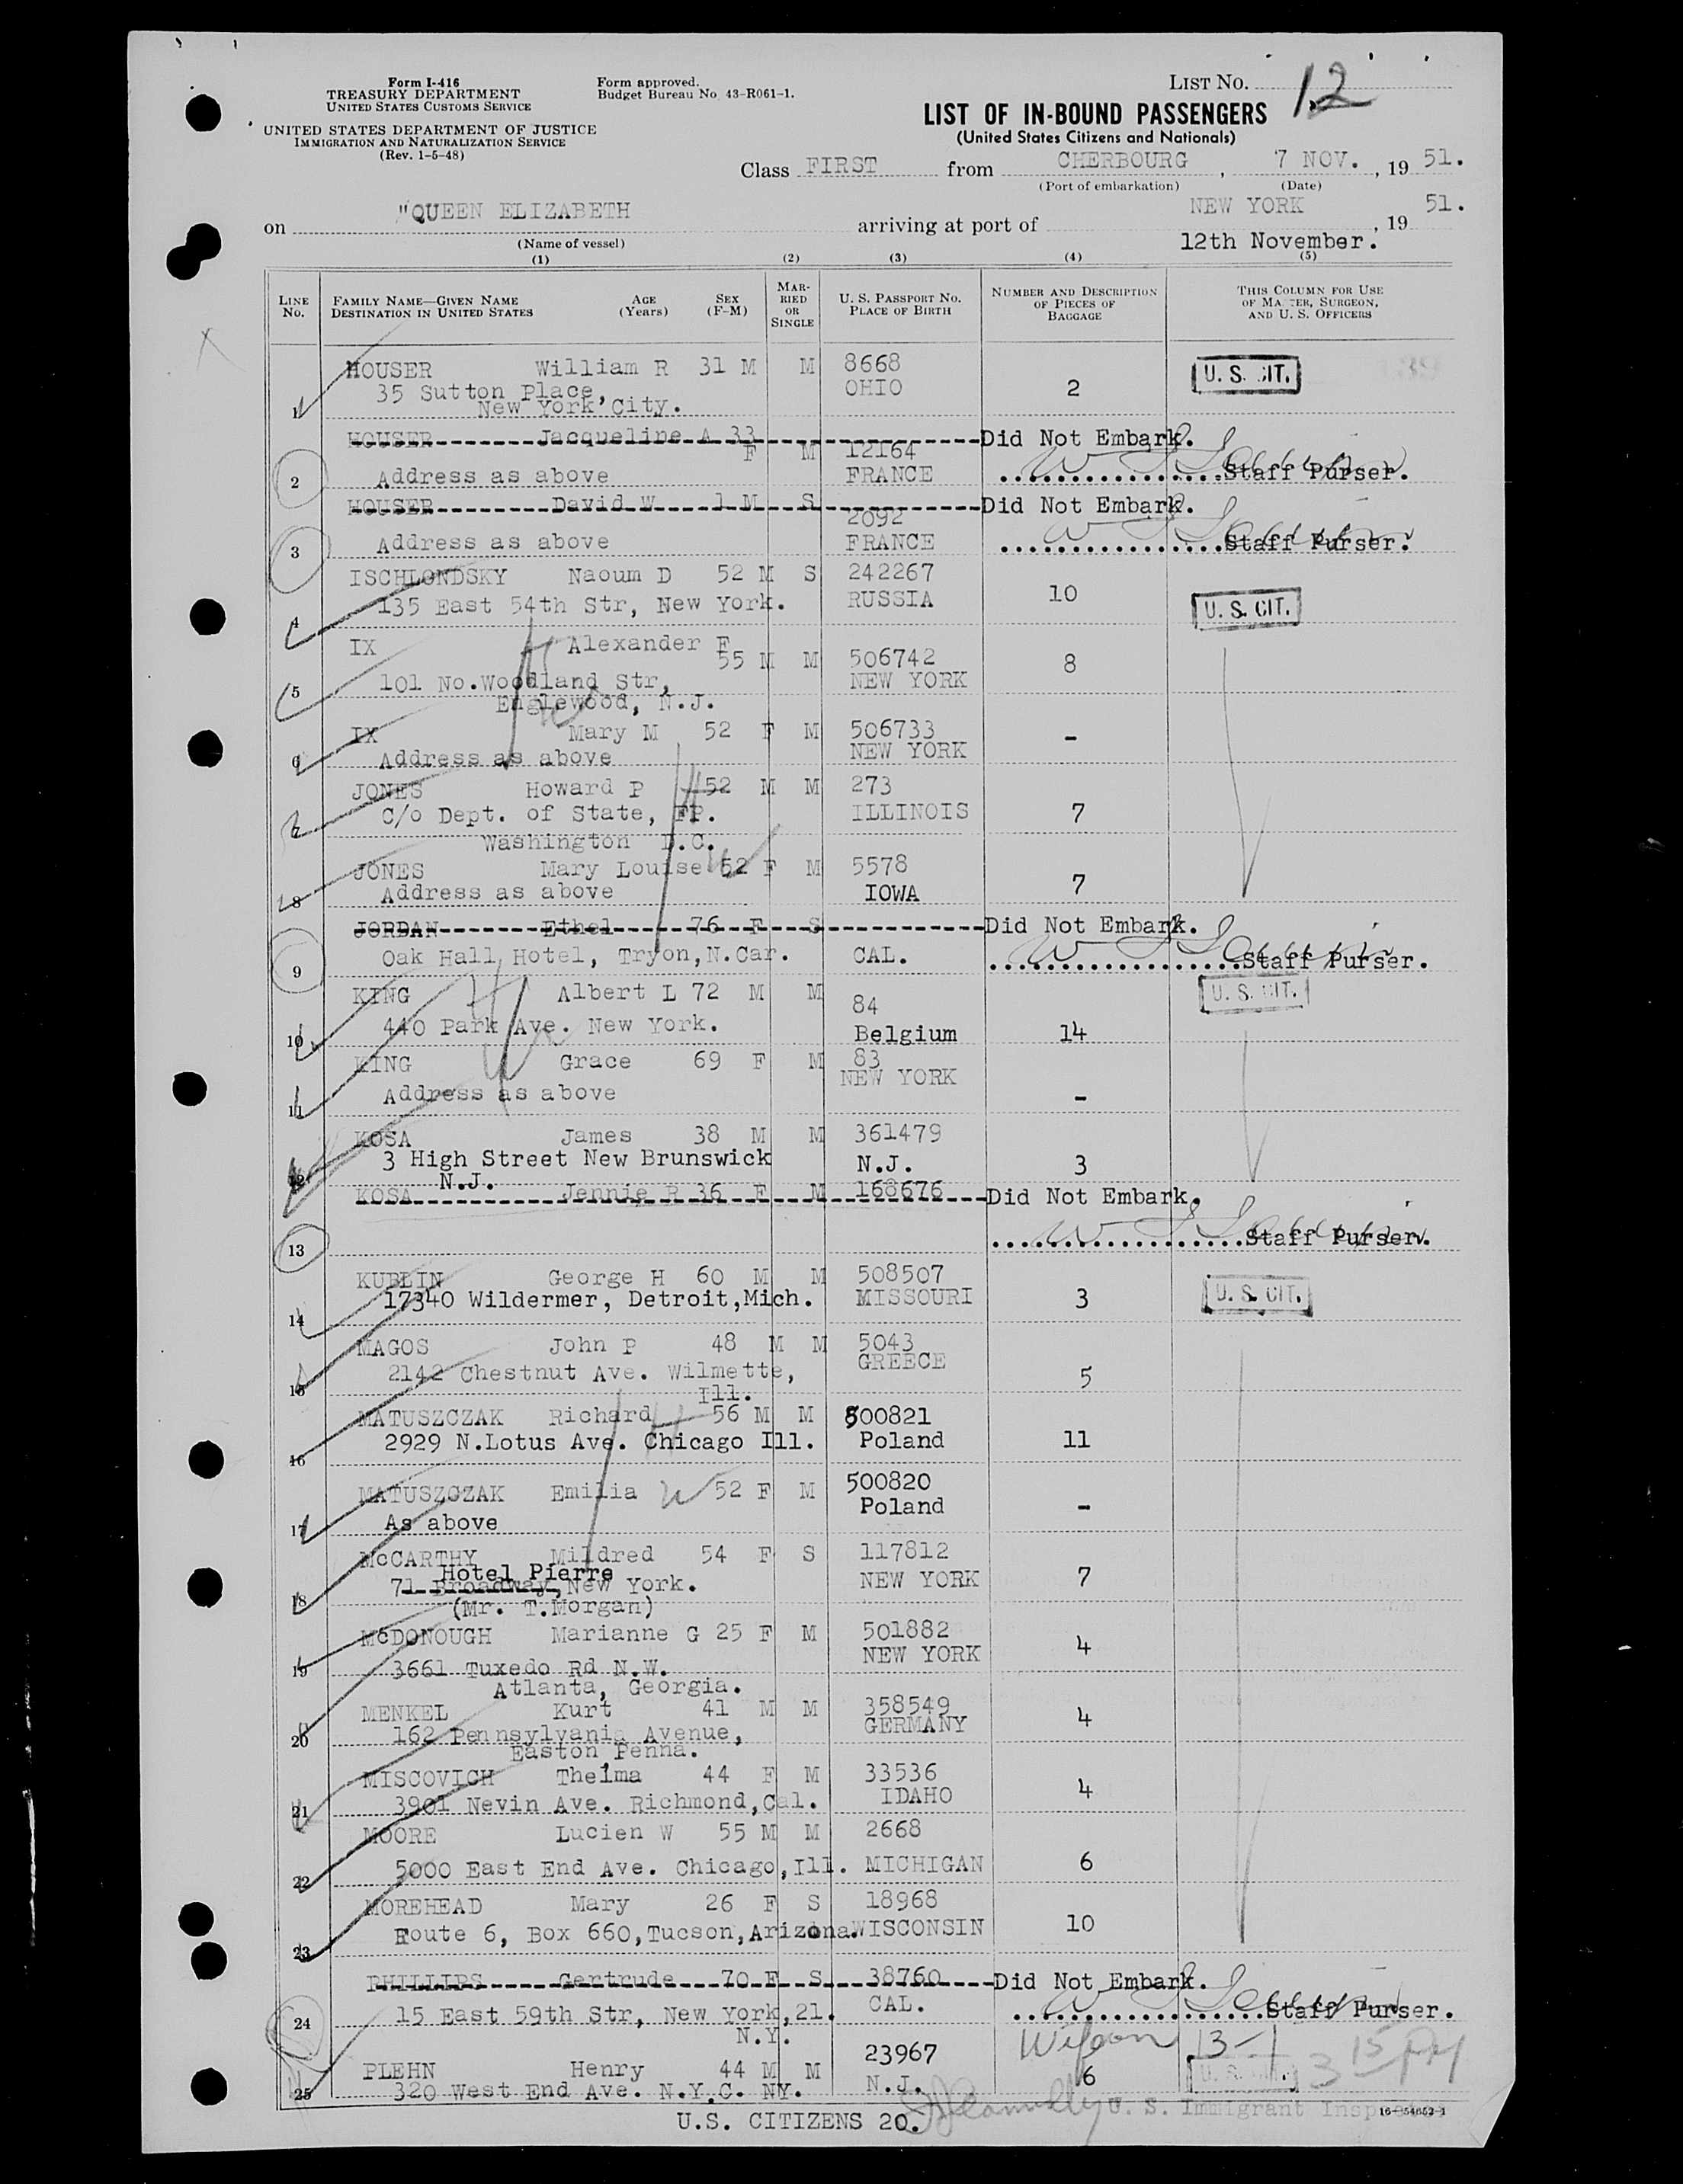 Form I-416
TREASURY DEPARTMENT
UNITED STATES CUSTOMS SERVICE
UNITED STATES DEPARTMENT OF JUSTICE
IMMIGRATION AND NATURALIZATION SERVICE
(Rev. 1-5-48)
Form approved.
Budget Bureau No. 43-R061-1.
LIST NO. 12
LIST OF IN-BOUND PASSENGERS
(United States Citizens and Nationals)
Class FIRST from CHERBOURG, 7 NOV., 19 51.
(Port of embarkation) (Date)
on "QUEEN ELIZABETH arriving at port of NEW YORK, 19 51.
(Name of vessel) 12th November.
(1) (2) (3) (4) (5)
LINE NO. FAMILY NAME—GIVEN NAME DESTINATION IN UNITED STATES AGE (Years) SEX (F-M) MARRIED OR SINGLE U. S. PASSPORT NO. PLACE OF BIRTH NUMBER AND DESCRIPTION OF PIECES OF BAGGAGE THIS COLUMN FOR USE OF MASTER, SURGEON, AND U. S. OFFICERS
HOUSER William R 31 M M 8668
1 35 Sutton Place, OHIO 2 U. S. CIT.
New York City.
HOUSER Jacqueline A 33 Did Not Embark.
F M 12164
2 Address as above FRANCE Staff Purser.
HOUSER David W 1 M S Did Not Embark.
2092
3 Address as above FRANCE Staff Purser.
ISCHLONDSKY Naoum D 52 M S 242267
4 135 East 54th Str, New York. RUSSIA 10 U. S. CIT.
IX Alexander F
55 M M 506742 8
5 101 No.Woodland Str, NEW YORK
Englewood, N.J.
IX Mary M 52 F M 506733 -
6 Address as above NEW YORK
JONES Howard P 52 M M 273
7 C/o Dept. of State, FP. ILLINOIS 7
Washington D.C.
JONES Mary Louise 52 F M 5578
8 Address as above IOWA 7
JORDAN Ethel 76 F S Did Not Embark.
9 Oak Hall Hotel, Tryon,N.Car. CAL. Staff Purser.
KING Albert L 72 M M 84 U. S. CIT.
10 440 Park Ave. New York. Belgium 14
KING Grace 69 F M 83
NEW YORK
11 Address as above -
KOSA James 38 M M 361479
12 3 High Street New Brunswick N.J. 3
N.J.
KOSA Jennie R 36 F M 168676 Did Not Embark.
13 Staff Purser.
KUBLIN George H 60 M M 508507
14 17340 Wildermer, Detroit,Mich. MISSOURI 3 U. S. CIT.
MAGOS John P 48 M M 5043
GREECE
15 2142 Chestnut Ave. Wilmette, 5
Ill.
MATUSZCZAK Richard 56 M M 500821
16 2929 N.Lotus Ave. Chicago Ill. Poland 11
MATUSZCZAK Emilia W 52 F M 500820
Poland -
17 As above
McCARTHY Mildred 54 F S 117812
Hotel Pierre
18 71 Broadway, New York. NEW YORK 7
(Mr. T.Morgan)
McDONOUGH Marianne G 25 F M 501882
NEW YORK 4
19 3661 Tuxedo Rd N.W.
Atlanta, Georgia.
MENKEL Kurt 41 M M 358549
GERMANY 4
20 162 Pennsylvania Avenue,
Easton Penna.
MISCOVICH Thelma 44 F M 33536
21 3901 Nevin Ave. Richmond,Cal. IDAHO 4
MOORE Lucien W 55 M M 2668
22 5000 East End Ave. Chicago,Ill. MICHIGAN 6
MOREHEAD Mary 26 F S 18968
23 Route 6, Box 660,Tucson,Arizona. WISCONSIN 10
PHILLIPS Gertrude 70 F S 38760 Did Not Embark.
24 15 East 59th Str, New York,21. CAL. Staff Purser.
N.Y.
PLEHN Henry 44 M M 23967
25 320 West End Ave. N.Y.C. NY. N.J. 6
3 15 PM
U.S. CITIZENS 20. U. S. Immigrant Inspector